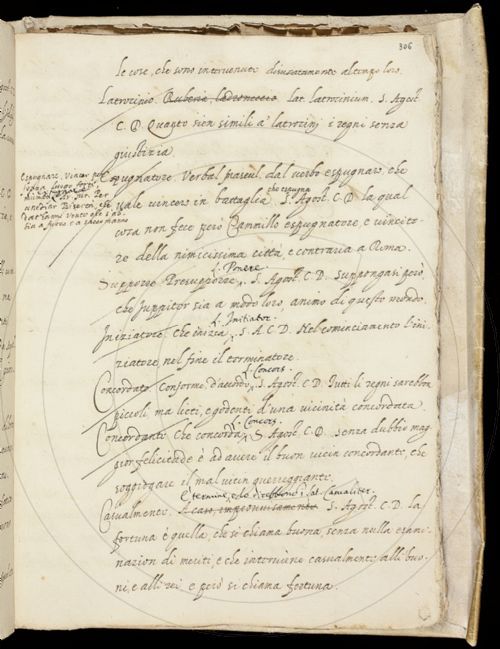 306
le cose, che sono intervenute divisatamente al tempo loro.
Latrocinio. Ruberia ladroneccio Lat. latrocinium. S. Agost.
C. D. Quanto sien simili a' latrocinj i regni senza
giustizia.
Espugnatore. Verbal mascul. dal verbo espugnare, che
vale vincere in battaglia. S. Agost. C. D. la qual
che espugna
cosa non fece però Cammillo espugnatore, e vincito-
re della nimicissima città, e contraria a Roma.
L. Ponere
Supporre. Presupporre. S. Agost. C. D. Suppongasi però,
che Juppitor sia a modo loro, animo di questo mondo.
L. Initiator.
Iniziatore. Che inizia. S. A. C. D. Nel cominciamento l'ini-
ziatore, nel fine il terminatore.
L. Concors.
Concordato. Conforme d'accordo, S. Agost. C. D. Tutti li regni sarebbon
piccoli, ma lieti, e godenti d'una vicinità concordata.
L. Concors.
Concordante. Che concorda, S. Agost. C. D. Senza dubbio mag-
gior felicitade è ad avere il buon vicin concordante, che
soggiogare il mal vicin guerreggiante.
Casualmente. A caso, improvisamente S. Agost. C. D. la
fortuna è quella, che si chiama buona senza nulla esami-
nazion di meriti, e che interviene casualmente alli buo-
ni, e alli rei e però si chiama fortuna.
Espugnare, Vencer per